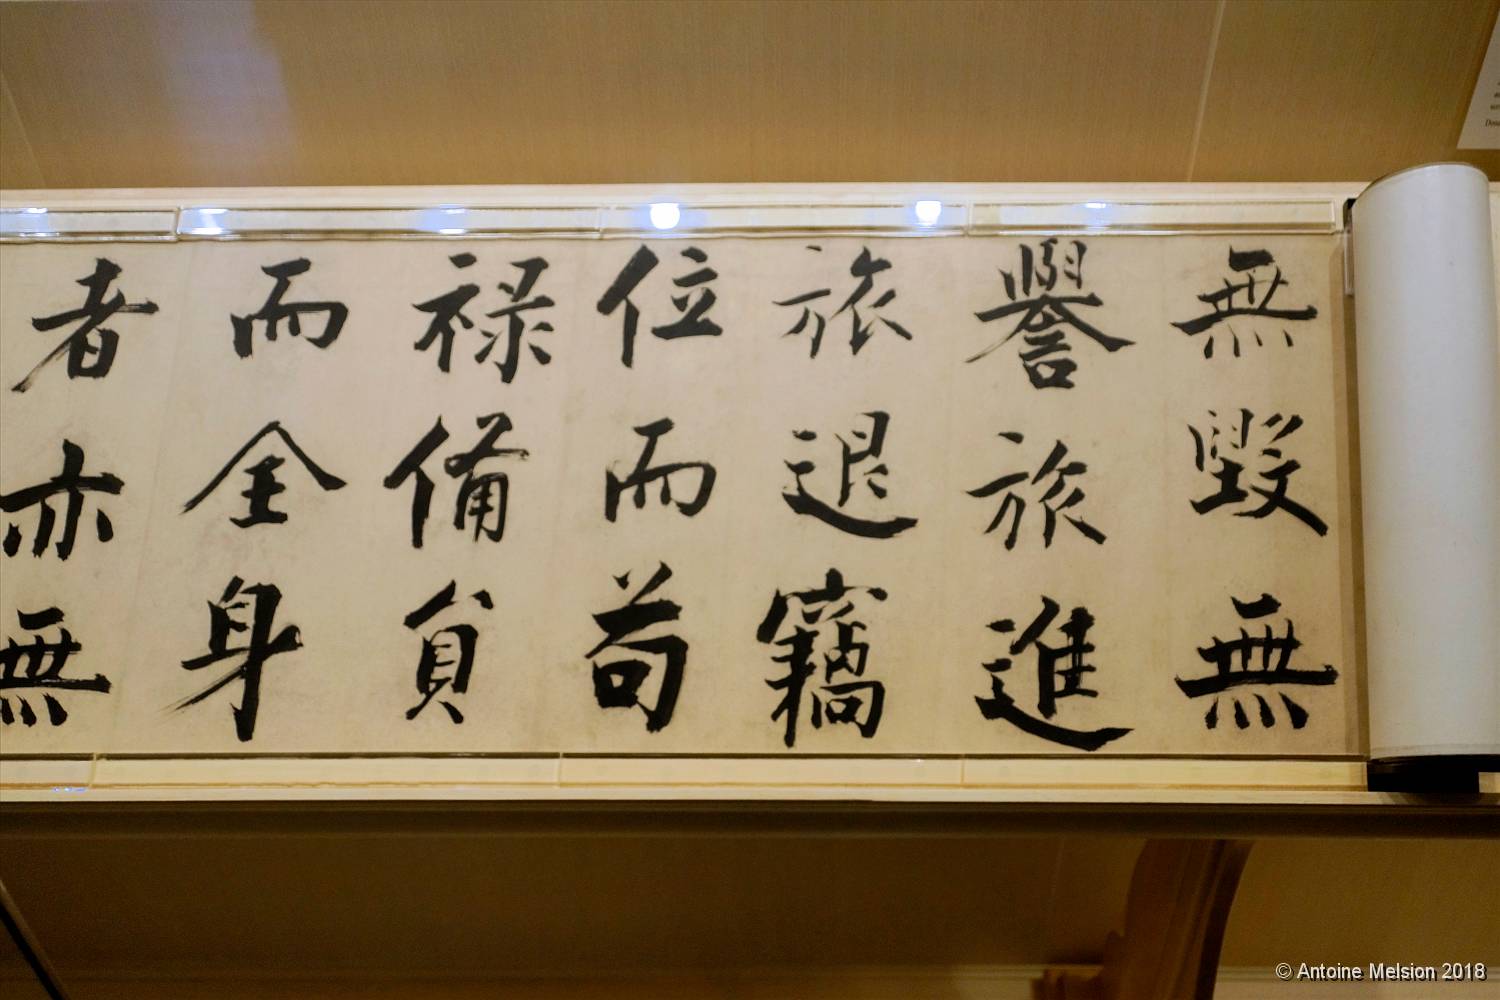 無毀無
譽旅進
旅退竊
位而苟
禄備員
而全身
者亦無
© Antoine Melsion 2018